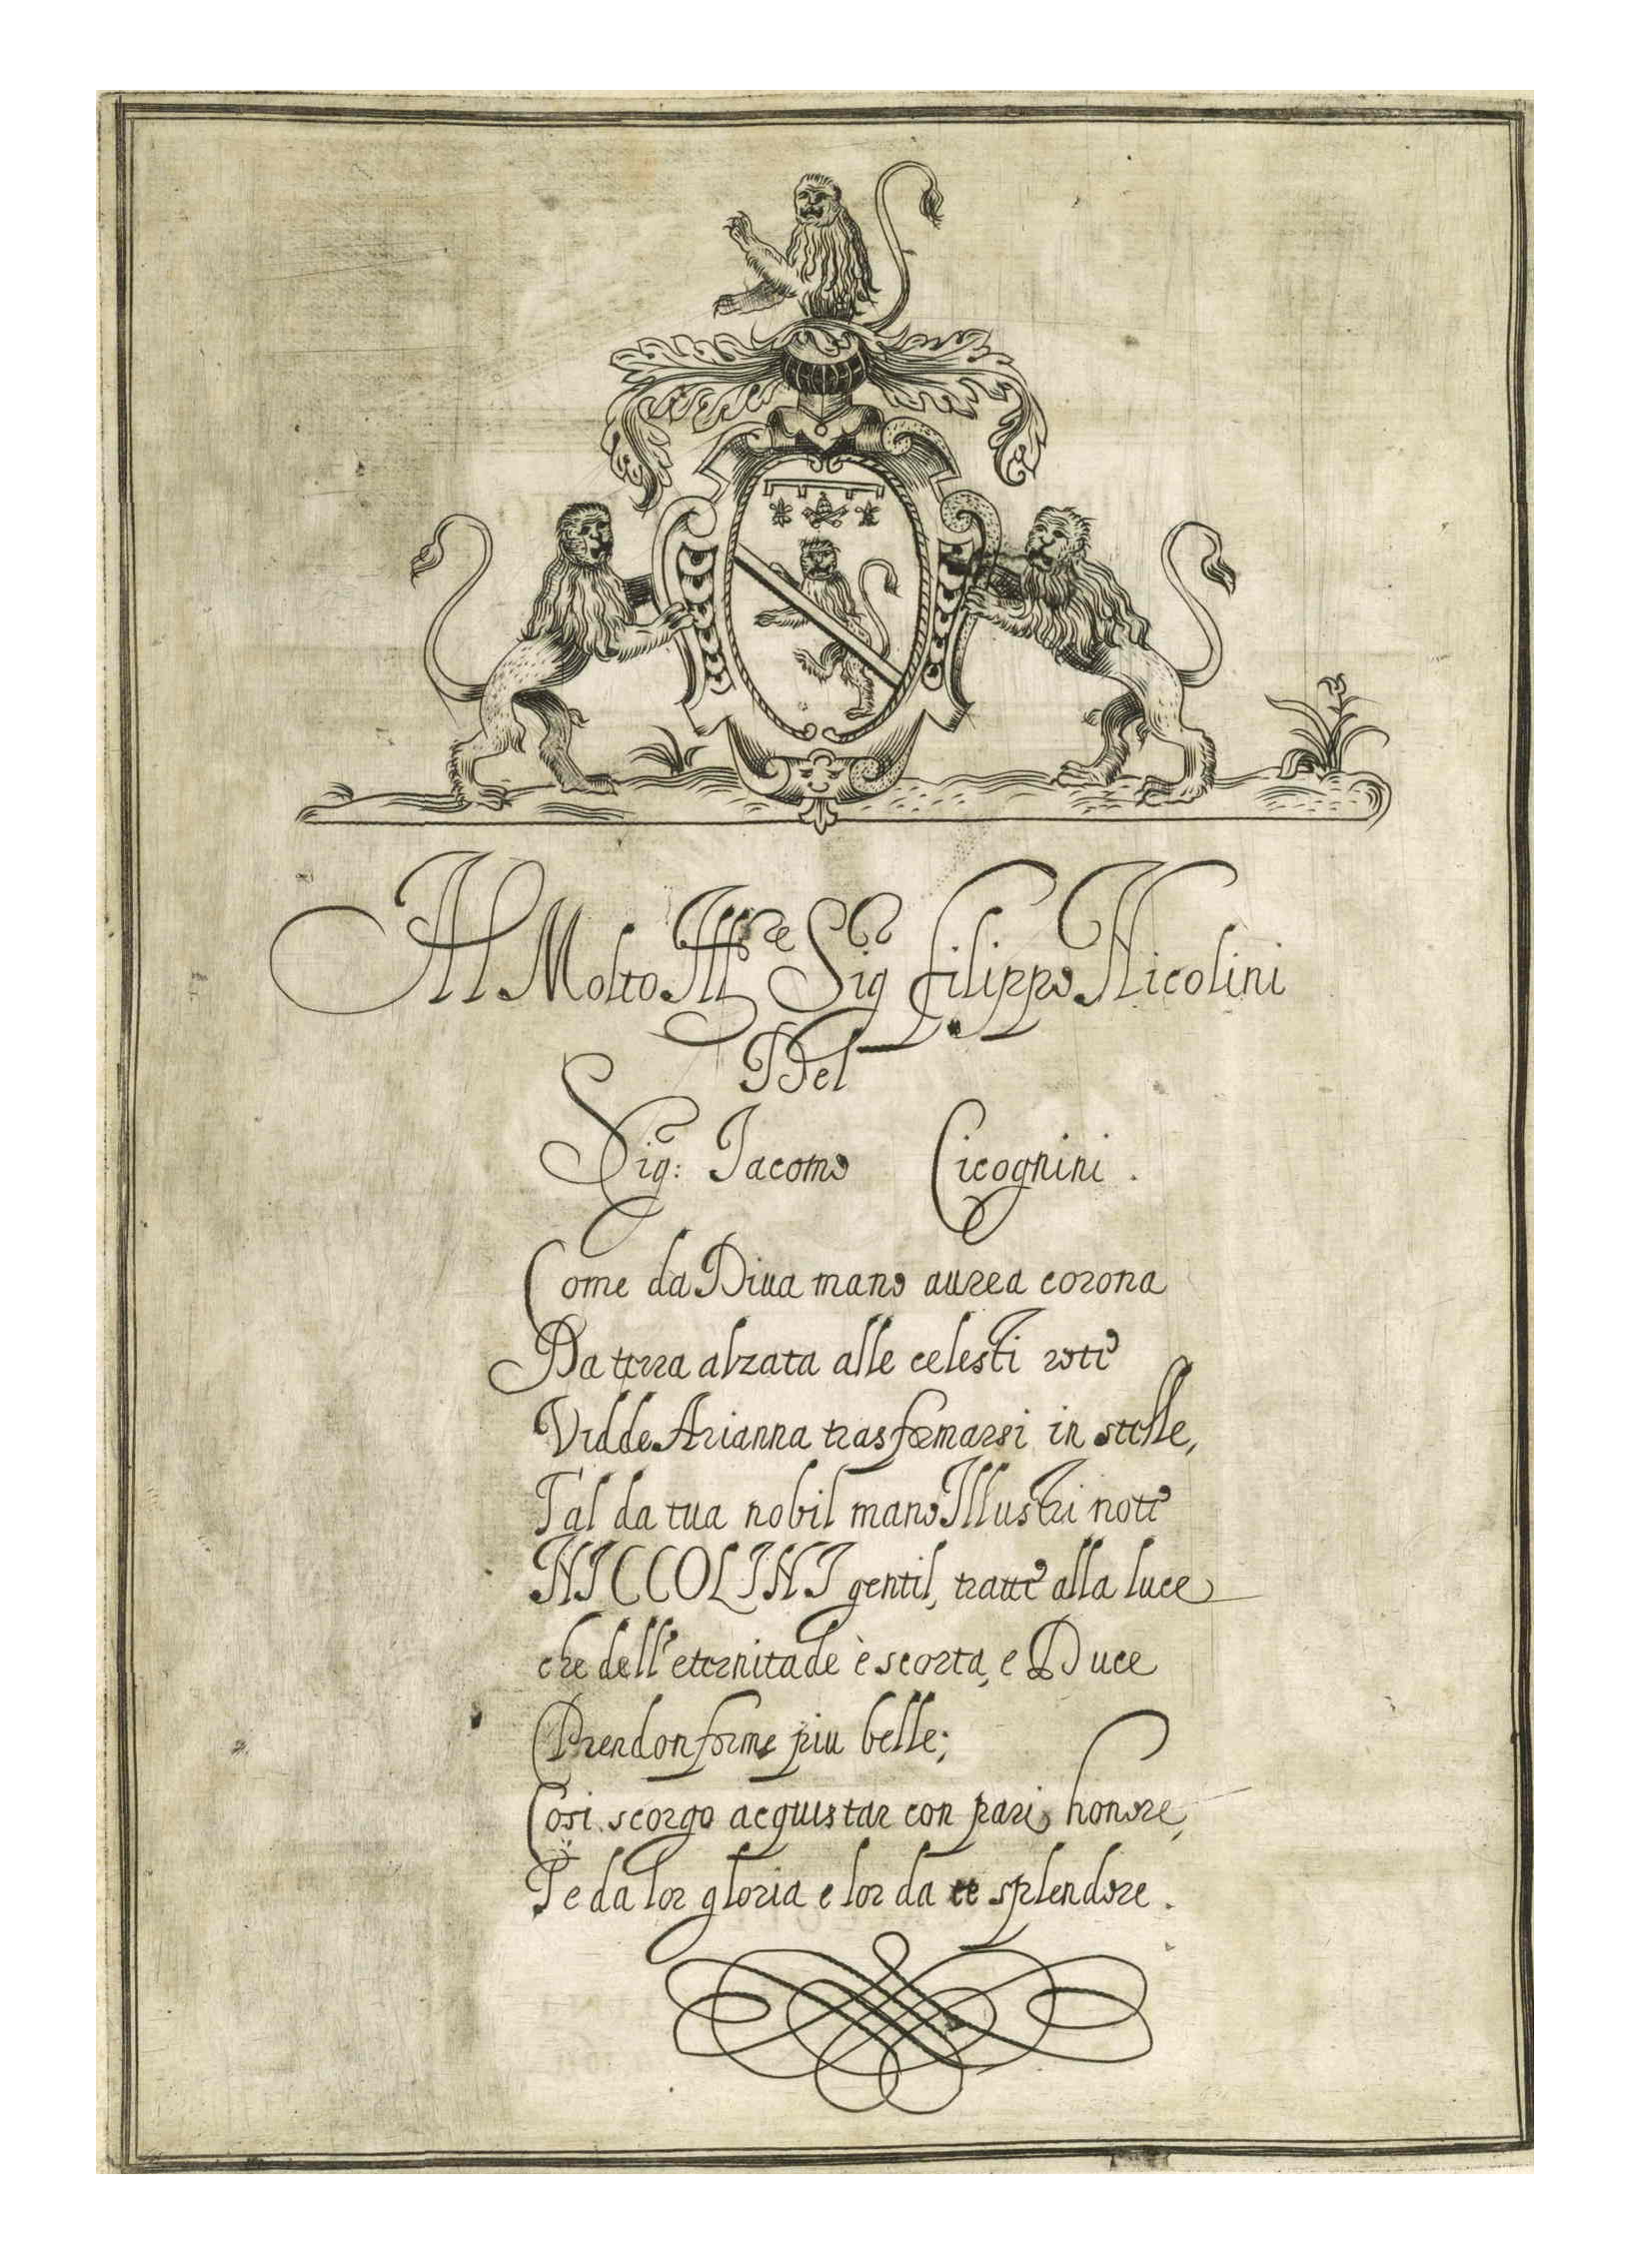 Al Molto Ill.re Sig.r filippo Nicolini
Del
Sig.r: Iacomo Cicognini.
Come da Diua mano aurea corona
Da terra alzata alle celesti rote
Vidde Arianna trasformarsi in stelle,
Tal da tua nobil mano Illustri note
NICCOLINI gentil, tratte alla luce
che dell'eternitade è scorta, e Duce
Prendon forme piu belle;
Cosi scorgo acquistar con pari honore,
Te da lor gloria e lor da te splendore.